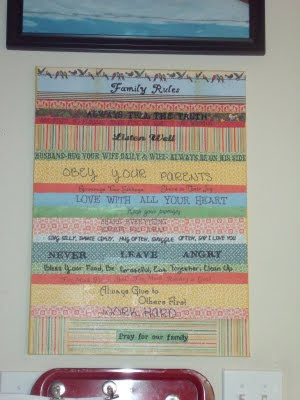 Family Rules
ALWAYS TELL THE TRUTH
Listen Well
HUSBAND-HUG YOUR WIFE DAILY & WIFE-ALWAYS BE ON HIS SIDE
OBEY YOUR PARENTS
Encourage Your Siblings Share in Their Joy
LOVE WITH ALL YOUR HEART
Keep your promises
SHARE EVERYTHING
LAUGH OFTEN, SAY I LOVE YOU
NEVER LEAVE ANGRY
Bless Your Food, Be Grateful, Eat Together, Clean Up
Always Give to
Others First
WORK HARD
Pray for our family